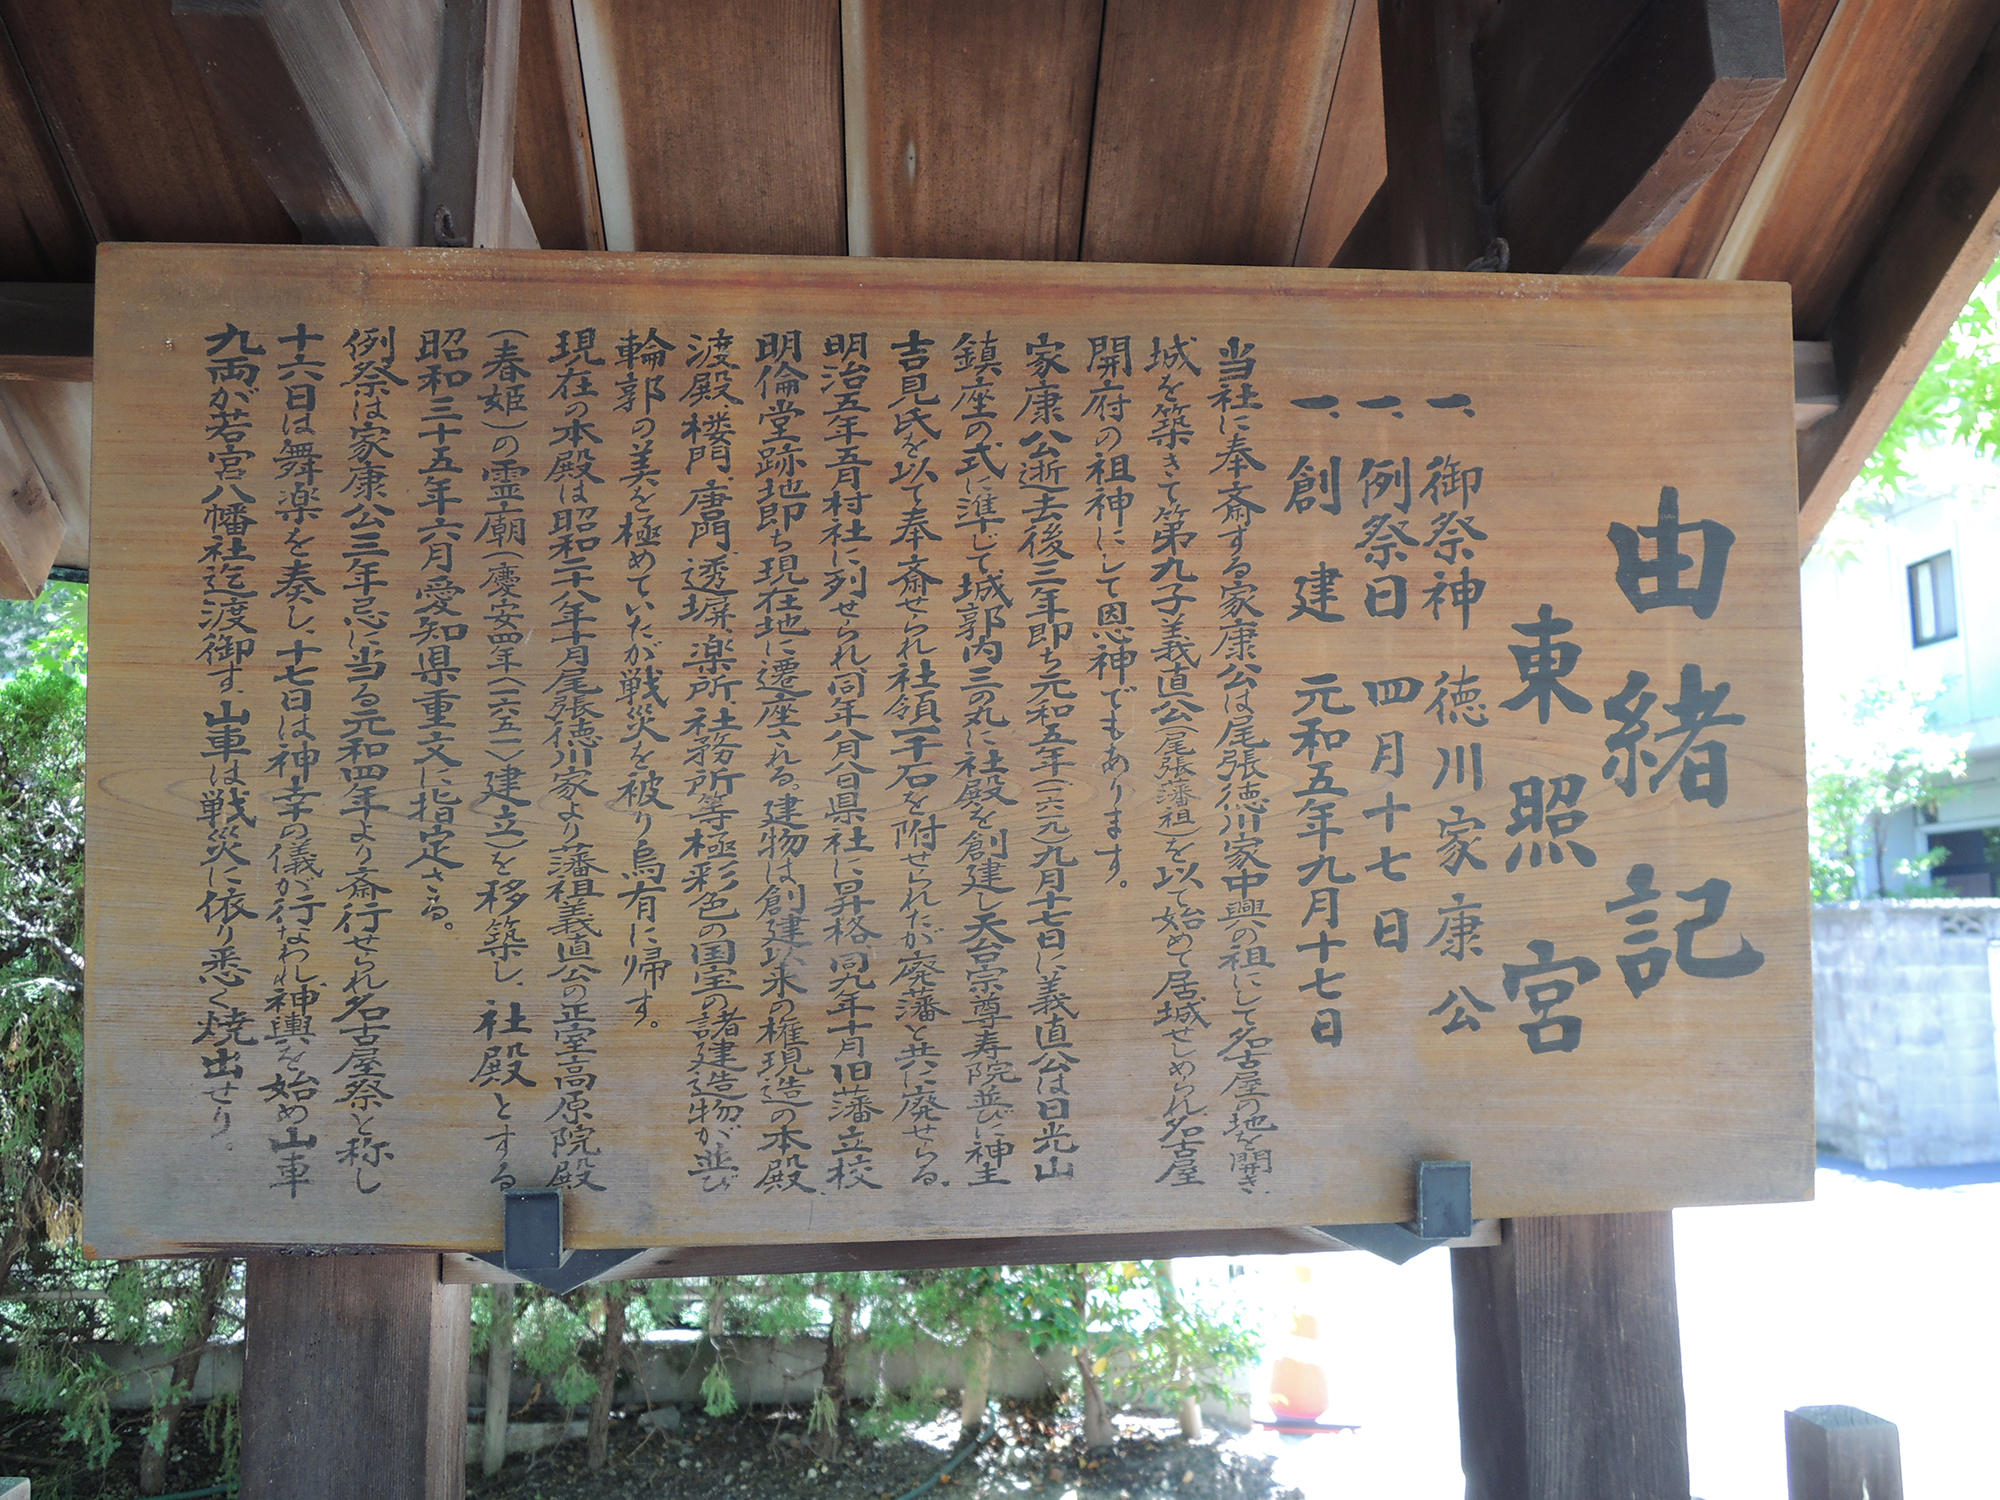 由緒記
東照宮
一、御祭神 徳川家康公
一、例祭日 四月十七日
一、創建 元和五年九月十七日
当社に奉斎する家康公は尾張徳川家中興の祖にして名古屋の地を開き、
城を築きて第九子義直公(尾張藩祖)を以て始めて居城せしめられ名古屋
開府の祖神にして恩神でもあります。
家康公逝去後三年即ち元和五年(一六一九)九月十七日に義直公は日光山
鎮座の式に準じて城郭内三の丸に社殿を創建し天台宗尊寿院並びに神主
吉見氏を以て奉斎せられ社領一千石を附せられたが廃藩と共に廃せらる。
明治五年五月村社に列せられ、同年八月八日県社に昇格、同九年十月旧藩立校
明倫堂跡地即ち現在地に遷座される。建物は創建以来の権現造の本殿、
渡殿、楼門、唐門、透塀、楽所、社務所等極彩色の国宝の諸建造物が並び
輪郭の美を極めていたが戦災を被り烏有に帰す。
現在の本殿は昭和二十八年十月尾張徳川家より藩祖義直公の正室高原院殿
(春姫)の霊廟(慶安四年(一六五一)建立)を移築し、社殿とする
昭和三十五年六月愛知県重文に指定さる。
例祭は家康公三年忌に当る元和四年より斎行せられ名古屋祭と称し
十六日は舞楽を奏し、十七日は神幸の儀が行なわれ神輿を始め山車
九両が若宮八幡社迄渡御す、山車は戦災に依り悉く焼出せり。